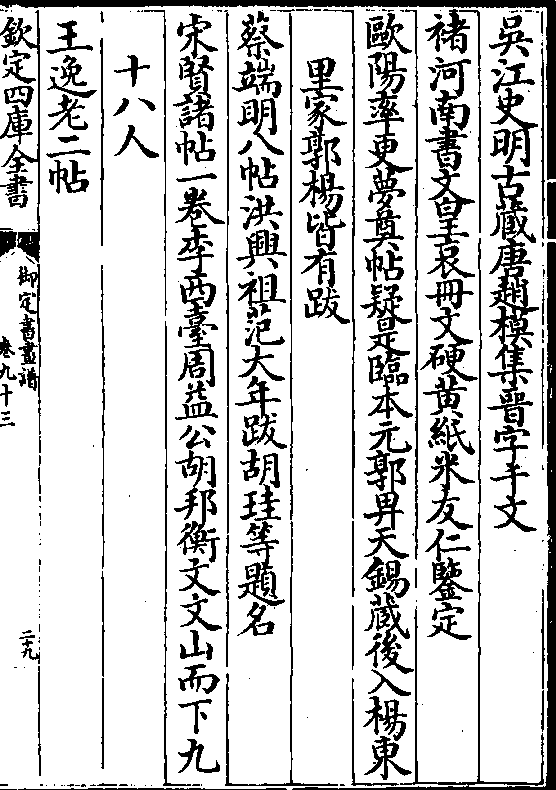 吳江史明古藏唐趙模集晉字千文
褚河南書文皇哀冊文硬黃紙米友仁鑒定
歐陽率更夢奠帖疑是臨本元郭畀天錫藏後入楊東
里家郭楊皆有跋
蔡端明八帖洪興祖范大年跋胡珪等題名
宋賢諸帖一卷李西臺周益公胡邦衡文文山而下九
十八人
王逸老二帖
欽定四庫全書
御定書畫譜
卷九十三
二九